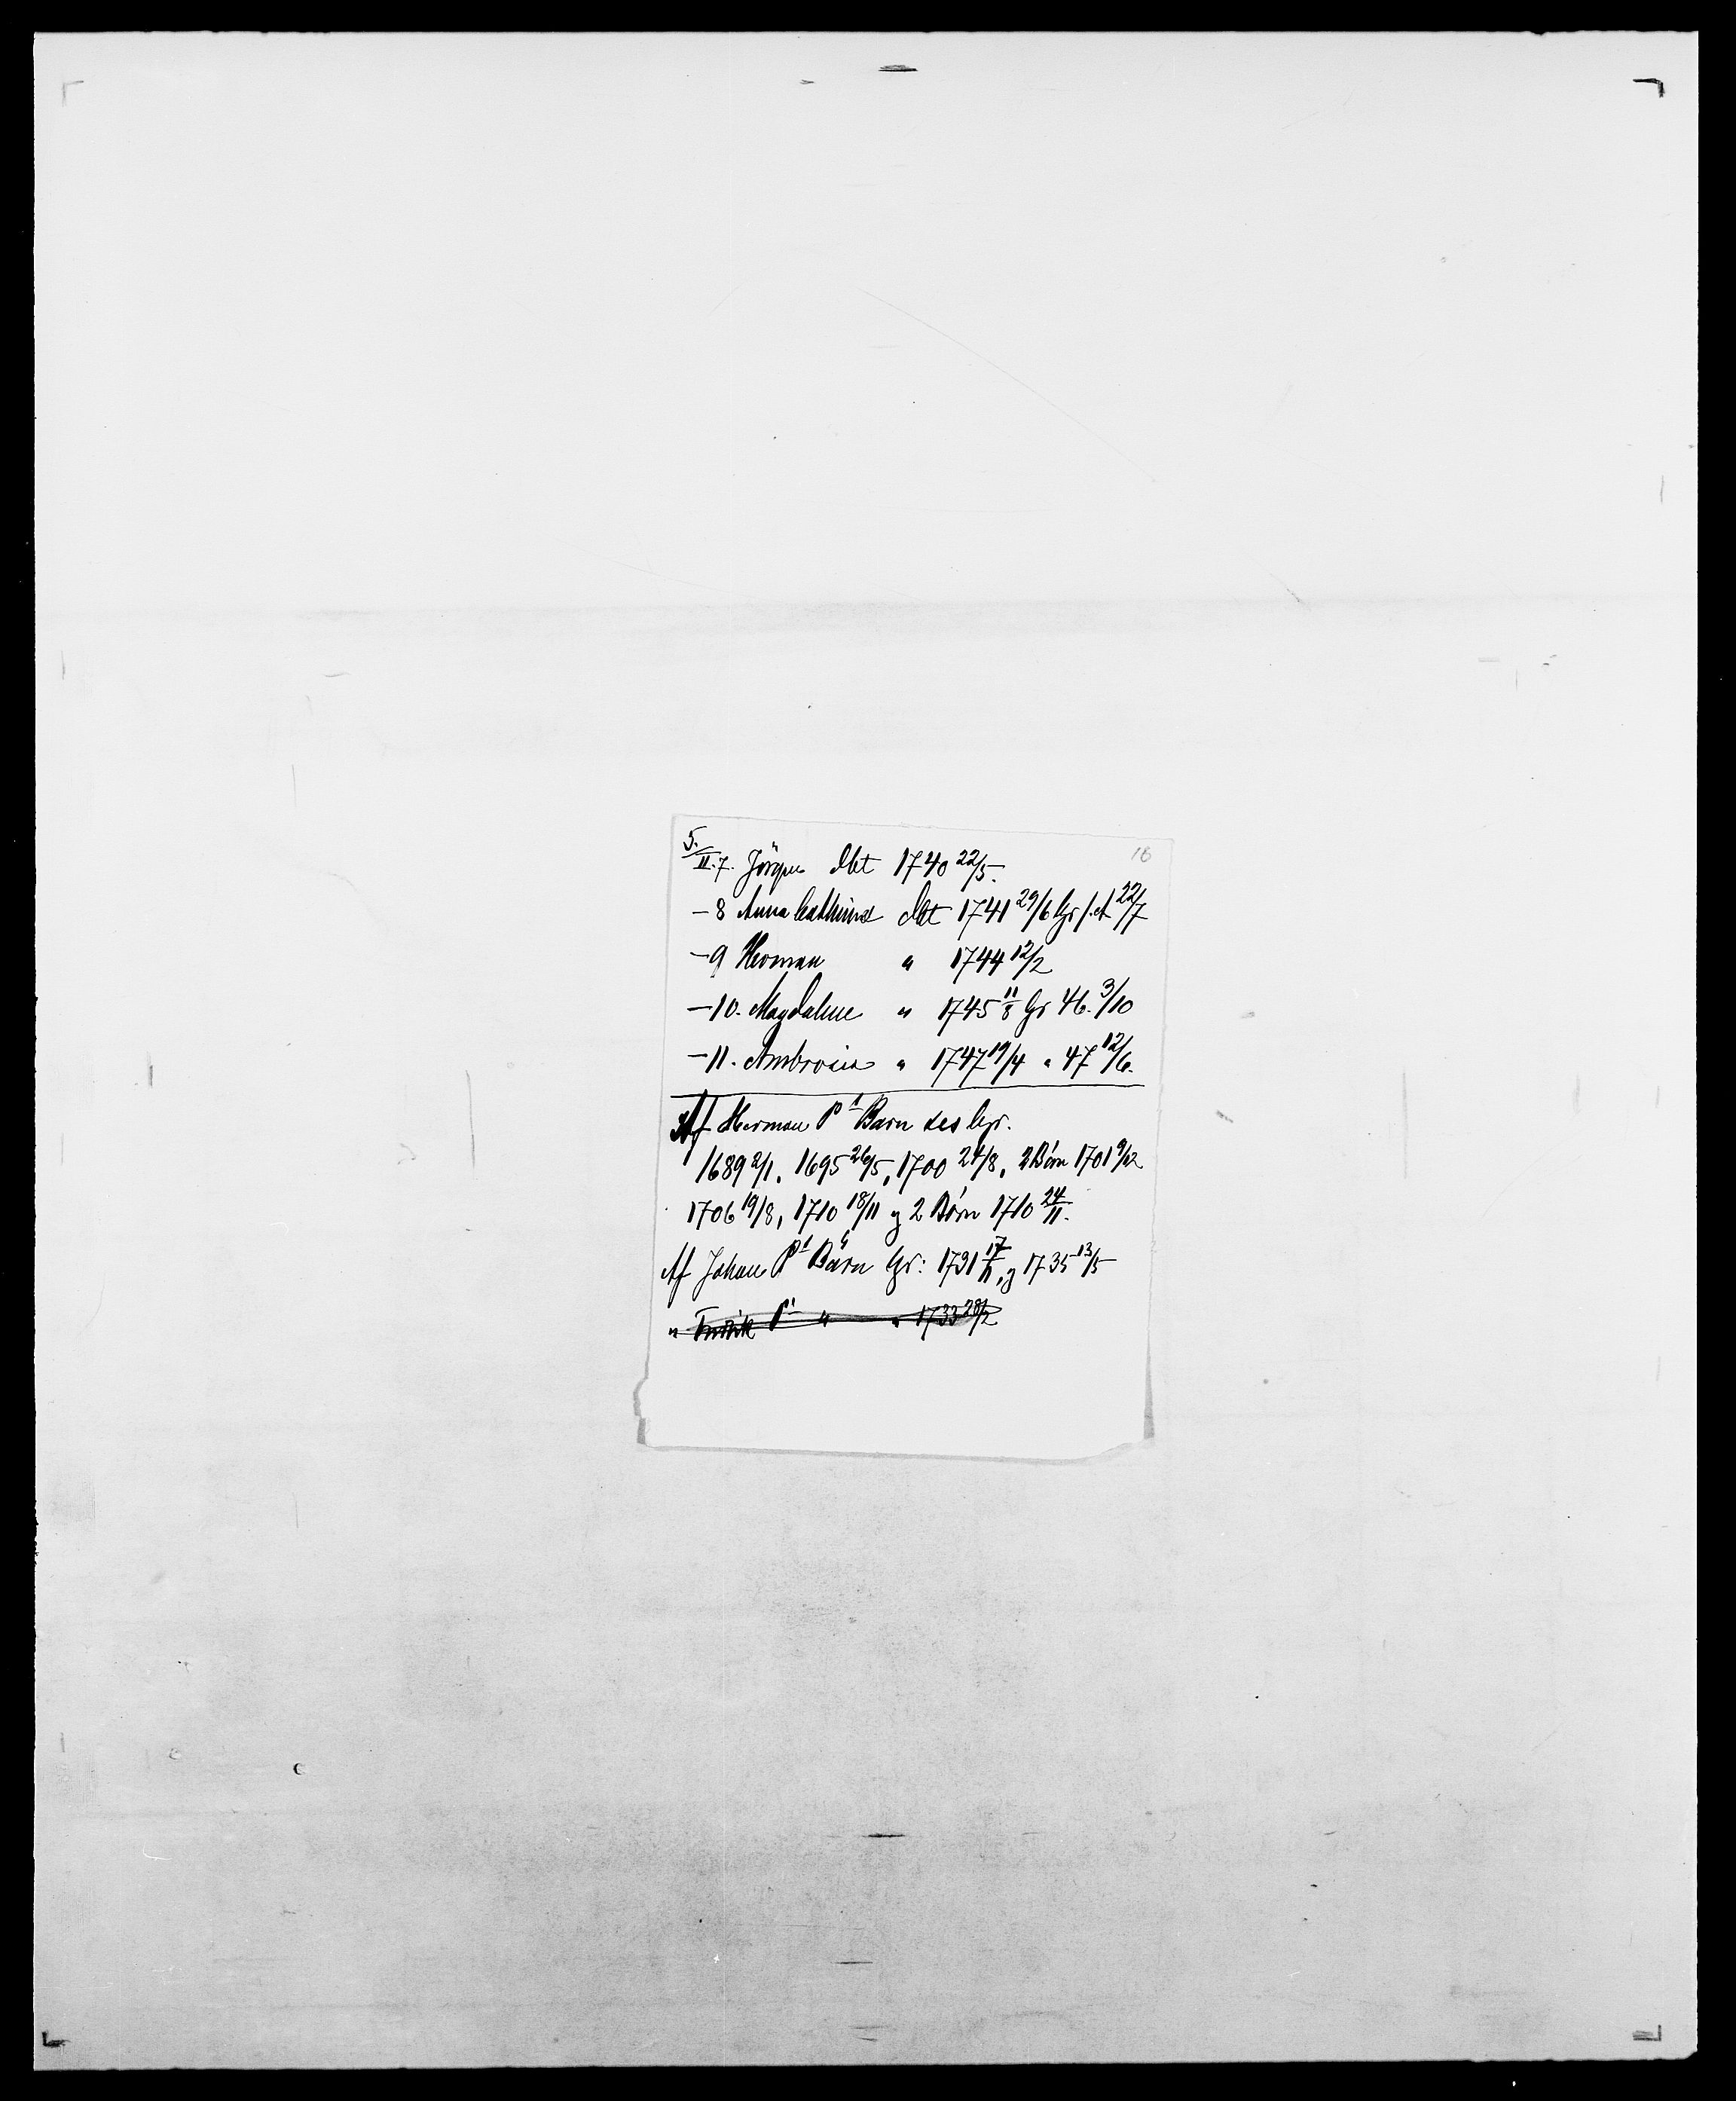 5. 18
II.7. Jörgen dbt 1740 22/5.
—8 Anna Cathrina dbt 1741 29/6 Gr s.A 22/7
—9 Herman " 1744 12/2
—10. Magdalene " 1745 11/8 Gr 46. 3/10
—11. Ambrosius " 1747 19/4 " 47 12/6.
Af Herman Ps Barn des Gr.
1689 2/1, 1695 26/5, 1700 24/8, 2 Börn 1701 9/12
1706 19/8, 1710 18/11 og 2 Börn 1710 24/11.
Af Johan Ps Barn Gr: 1731 17/11, og 1735 13/5
" Fridrik Ps " " 1733 28/2